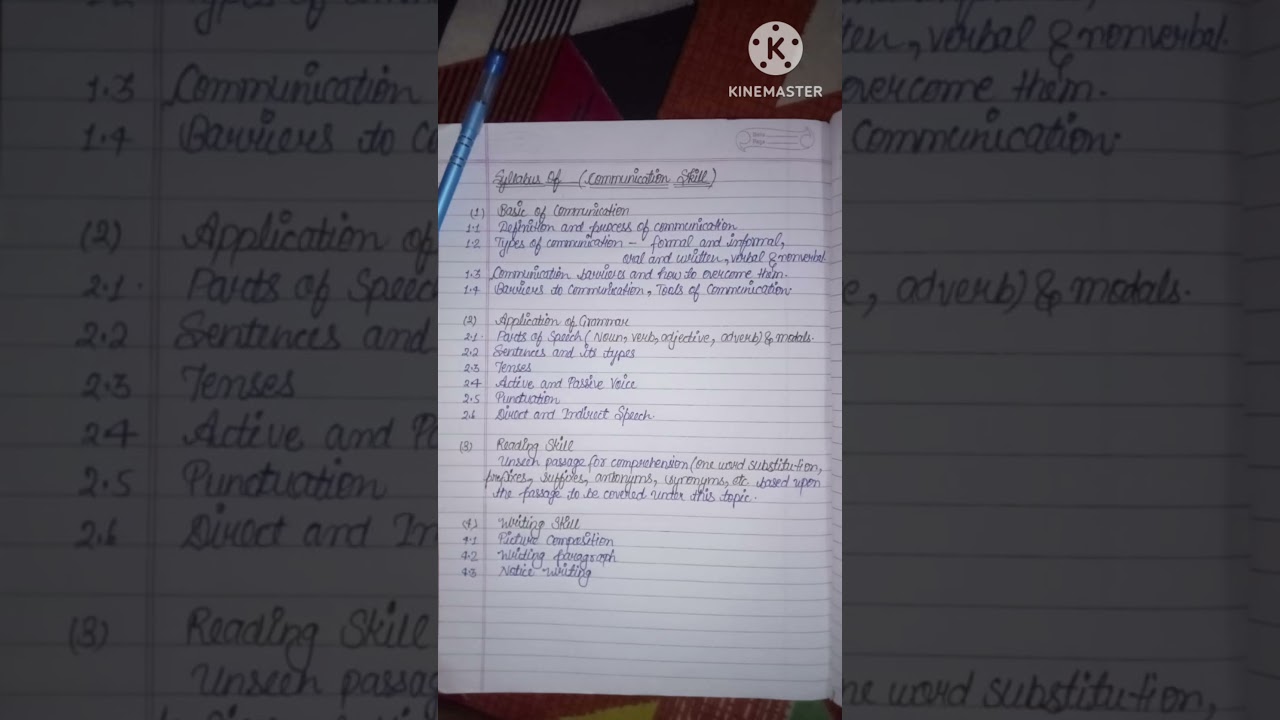 KINEMASTER
Syllabus Of (Communication Skill)
(1) Basic of Communication
1.1 Definition and process of communication
1.2 Types of communication - formal and informal,
oral and written, verbal & nonverbal.
1.3 Communication barriers and how to overcome them.
1.4 Barriers to Communication, Tools of Communication.
(2) Application of Grammar
2.1. Parts of Speech (Noun, verb, adjective, adverb) & modals.
2.2 Sentences and its types
2.3 Tenses
2.4 Active and Passive Voice
2.5 Punctuation
2.6 Direct and Indirect Speech.
(3) Reading Skill
Unseen passage for comprehension (one word substitution,
prefixes, suffixes, antonyms, synonyms, etc. based upon
the passage to be covered under this topic.
(4) Writing Skill
4.1 Picture Composition
4.2 Writing paragraph
4.3 Notice Writing